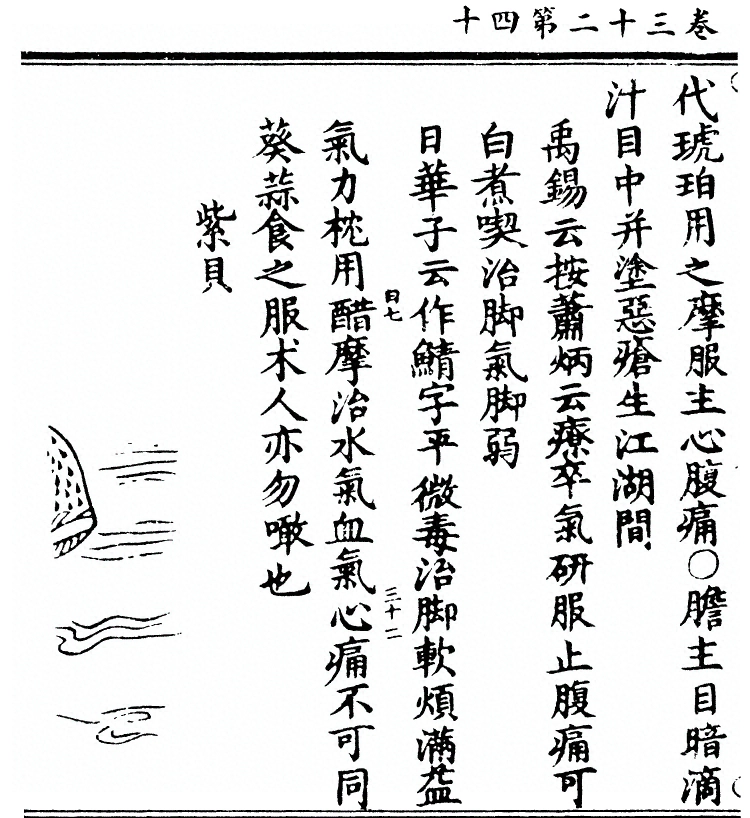 卷三十二第四十
代琥珀用之摩服主心腹痛〇膽主目暗滴
汁目中并塗惡瘡生江湖間
禹錫云按蕭炳云療卒氣研服止腹痛可
白煮喫治脚氣脚弱
日華子云作鯖字平微毒治脚軟煩滿益
日七
三十二
氣力枕用醋摩治水氣血氣心痛不可同
葵蒜食之服术人亦勿噉也
紫貝